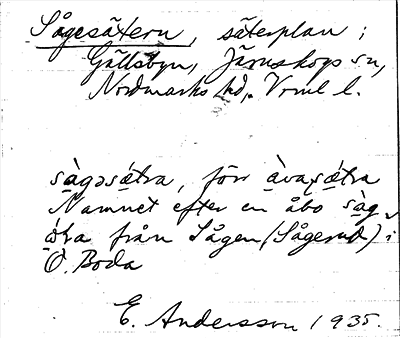 Sågesätern, säterplan i
Gällsbyn, Järnskogs sn,
Nordmarks hd, Vrml l.
sàgəsǽtra, förr àvaxǽtra
Namnet efter en åbo såg
från Sågen (Sågerud) i
Ö. Boda
E. Andersson 1935.